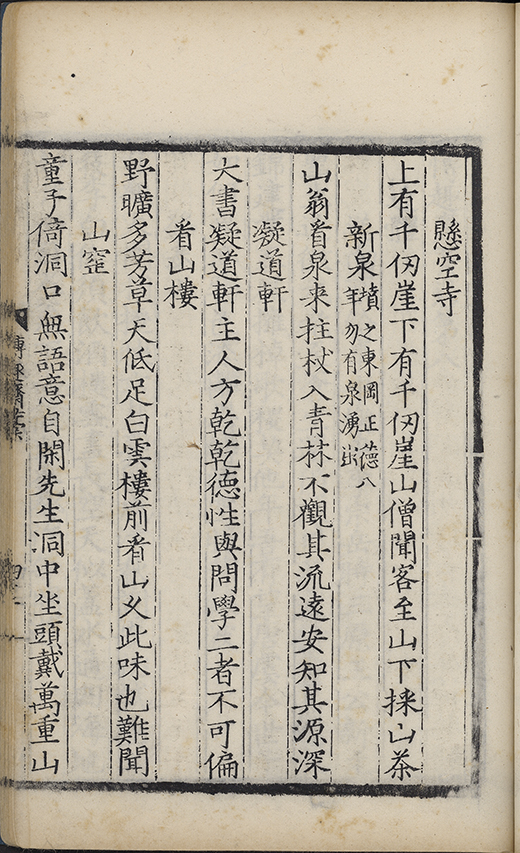 懸空寺
上有千仭崖下有千仭崖山僧聞客至山下採山茶
新泉墳之東岡正德八
年勿有泉湧出
山翁㸔泉来拄杖入青林不觀其流遠安知其源深
凝道軒
大書凝道軒主人方乾乾德性與問學二者不可偏
㸔山樓
野曠多芳草天低足白雲樓前㸔山乆此味也難聞
山
童子倚洞口無語意自閑先生洞中坐頭戴萬重山